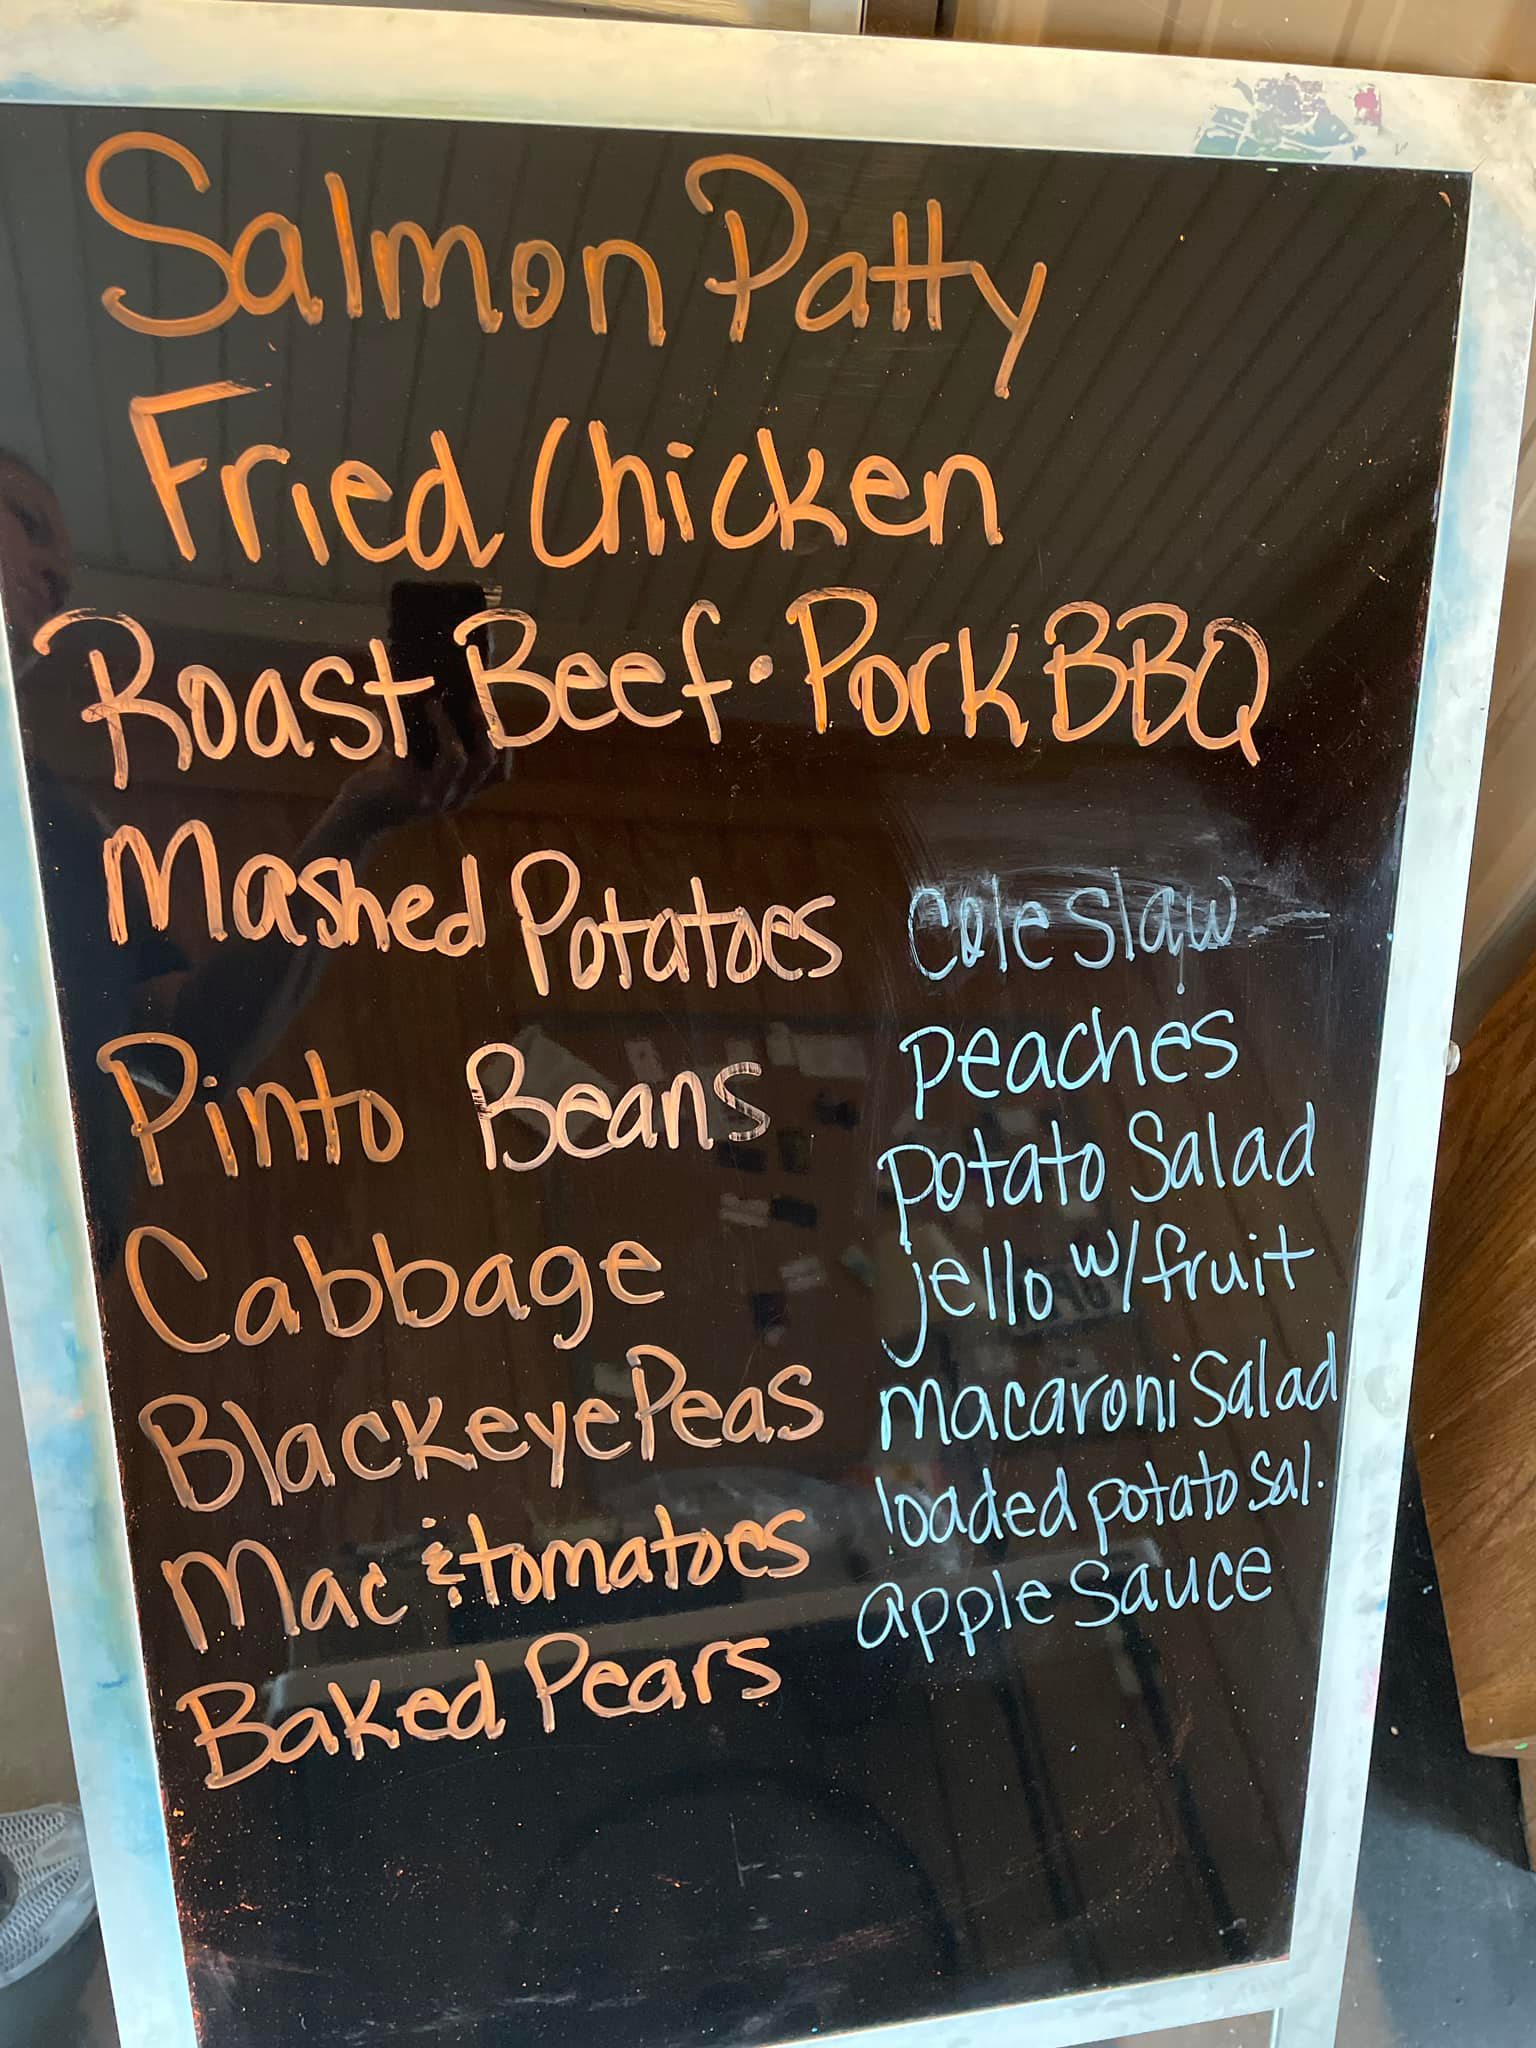 Salmon Patty
Fried Chicken
Roast Beef · Pork BBQ
Mashed Potatoes
Pinto Beans
Cabbage
Blackeye Peas
Mac & tomatoes
Baked Pears
Cole Slaw
peaches
potato Salad
jello w/fruit
macaroni Salad
loaded potato sal.
apple Sauce